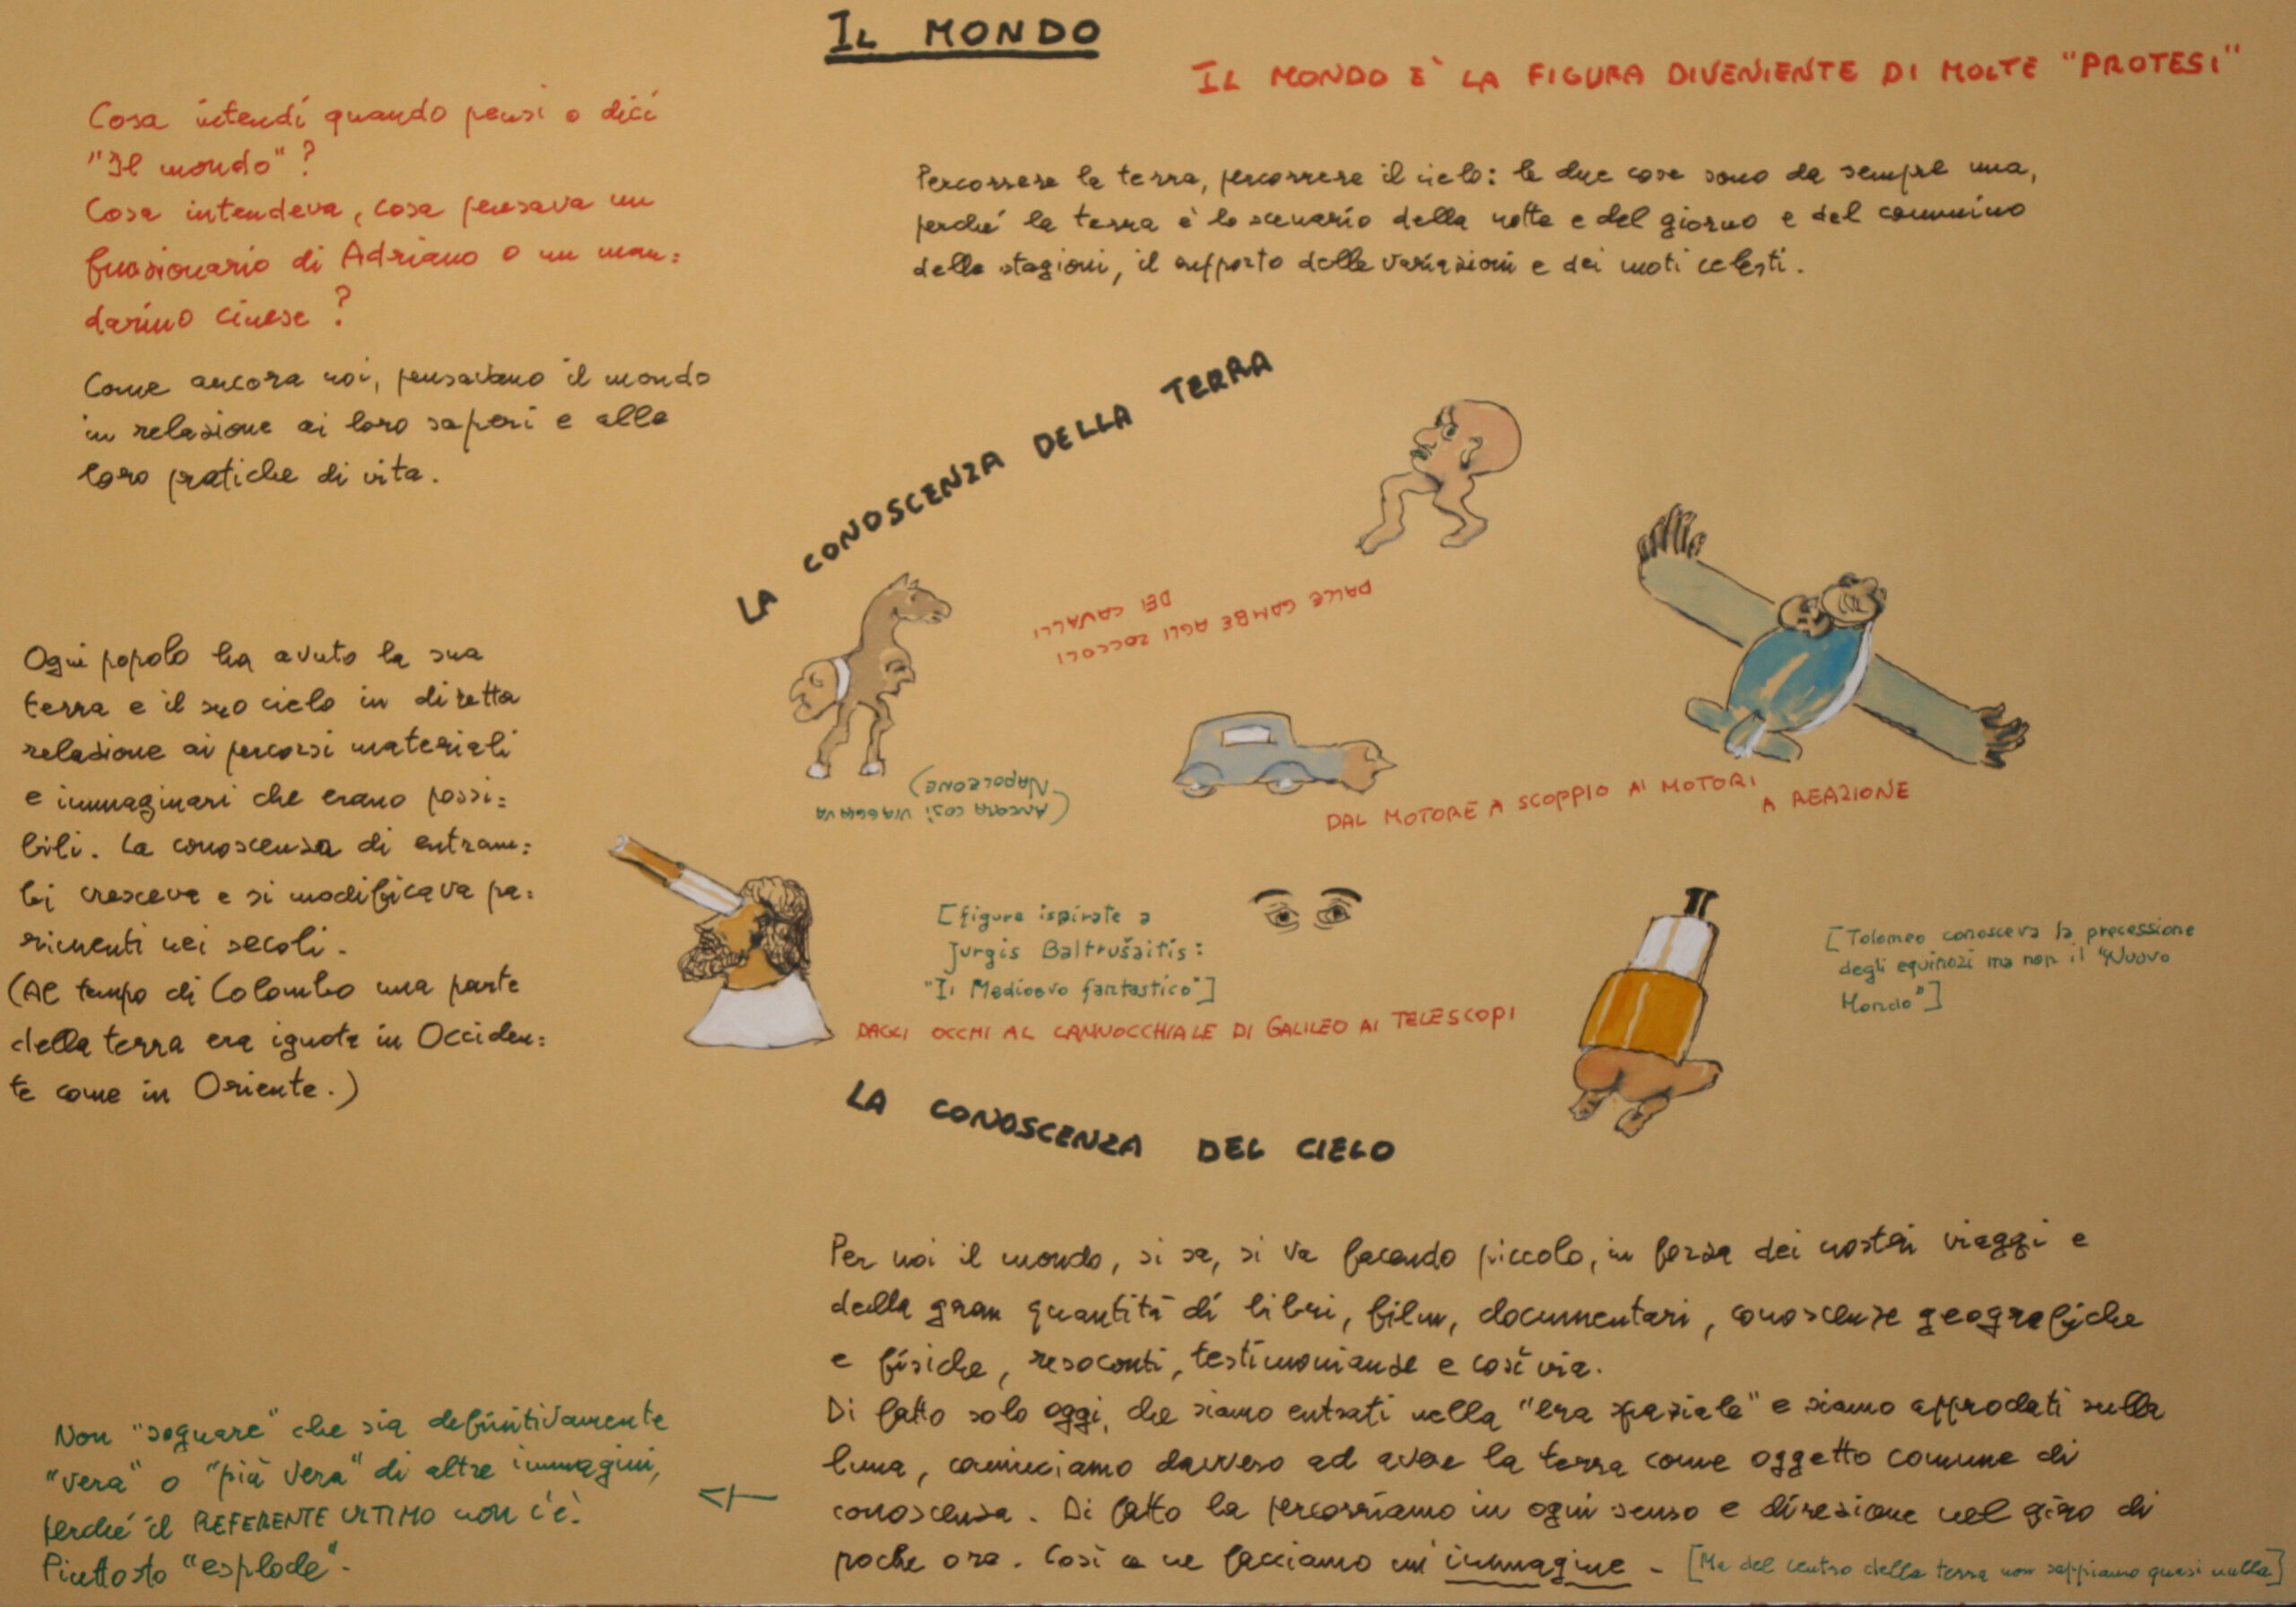 IL MONDO
IL MONDO E' LA FIGURA DIVENIENTE DI MOLTE "PROTESI"
Cosa intendi quando pensi o dici
"Il mondo"?
Cosa intendeva, cosa pensava un
funzionario di Adriano o un man:
darino cinese?
Come ancora noi, pensavano il mondo
in relazione ai loro saperi e alle
loro pratiche di vita.
Percorrere la terra, percorrere il cielo: le due cose sono da sempre una,
perché la terra è lo scenario della notte e del giorno e del cammino
delle stagioni, il supporto delle variazioni e dei moti celesti.
LA CONOSCENZA DELLA TERRA
DALLE GAMBE AGLI ZOCCOLI
DEI CAVALLI
(ANCORA COSÌ VIAGGIAVA
NAPOLEONE)
DAL MOTORE A SCOPPIO AI MOTORI
A REAZIONE
Ogni popolo ha avuto la sua
terra e il suo cielo in diretta
relazione ai percorsi materiali
e immaginari che erano possi:
bili. La conoscenza di entram:
bi cresceva e si modificava pa:
rimenti nei secoli.
(Al tempo di Colombo una parte
della terra era ignota in Occiden:
te come in Oriente.)
[figure ispirate a
Jurgis Baltrušaitis:
"Il Medioevo fantastico"]
DAGLI OCCHI AL CANNOCCHIALE DI GALILEO AI TELESCOPI
[Tolomeo conosceva la precessione
degli equinozi ma non il "Nuovo
Mondo"]
LA CONOSCENZA DEL CIELO
Per noi il mondo, si sa, si va facendo piccolo, in forza dei nostri viaggi e
della gran quantità di libri, film, documentari, conoscenze geografiche
e fisiche, resoconti, testimonianze e così via.
Di fatto solo oggi, che siamo entrati nella "era spaziale" e siamo approdati sulla
luna, cominciamo davvero ad avere la terra come oggetto comune di
conoscenza. Di fatto la percorriamo in ogni senso e direzione nel giro di
poche ore. Così ce ne facciamo un'immagine - [Ma del centro della terra non sappiamo quasi nulla]
Non "sognare" che sia definitivamente
"vera" o "più vera" di altre immagini,
perché il REFERENTE ULTIMO non c'è.
Piuttosto "esplode".